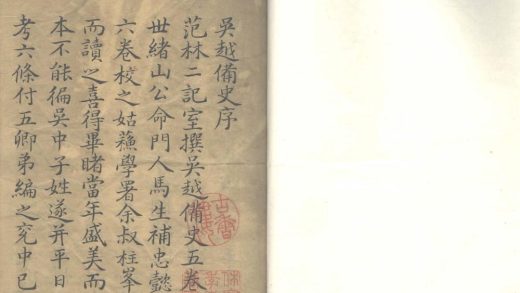 吳越備史序
范林二記室撰吳越備史五卷
世緒山公命門人馬生補忠懿
六卷校之姑蘓學署余叔柱峯
而讀之喜得畢睹當年盛美而
本不能徧吳中子姓遂并平日
考六條付五卿弟編之究中已